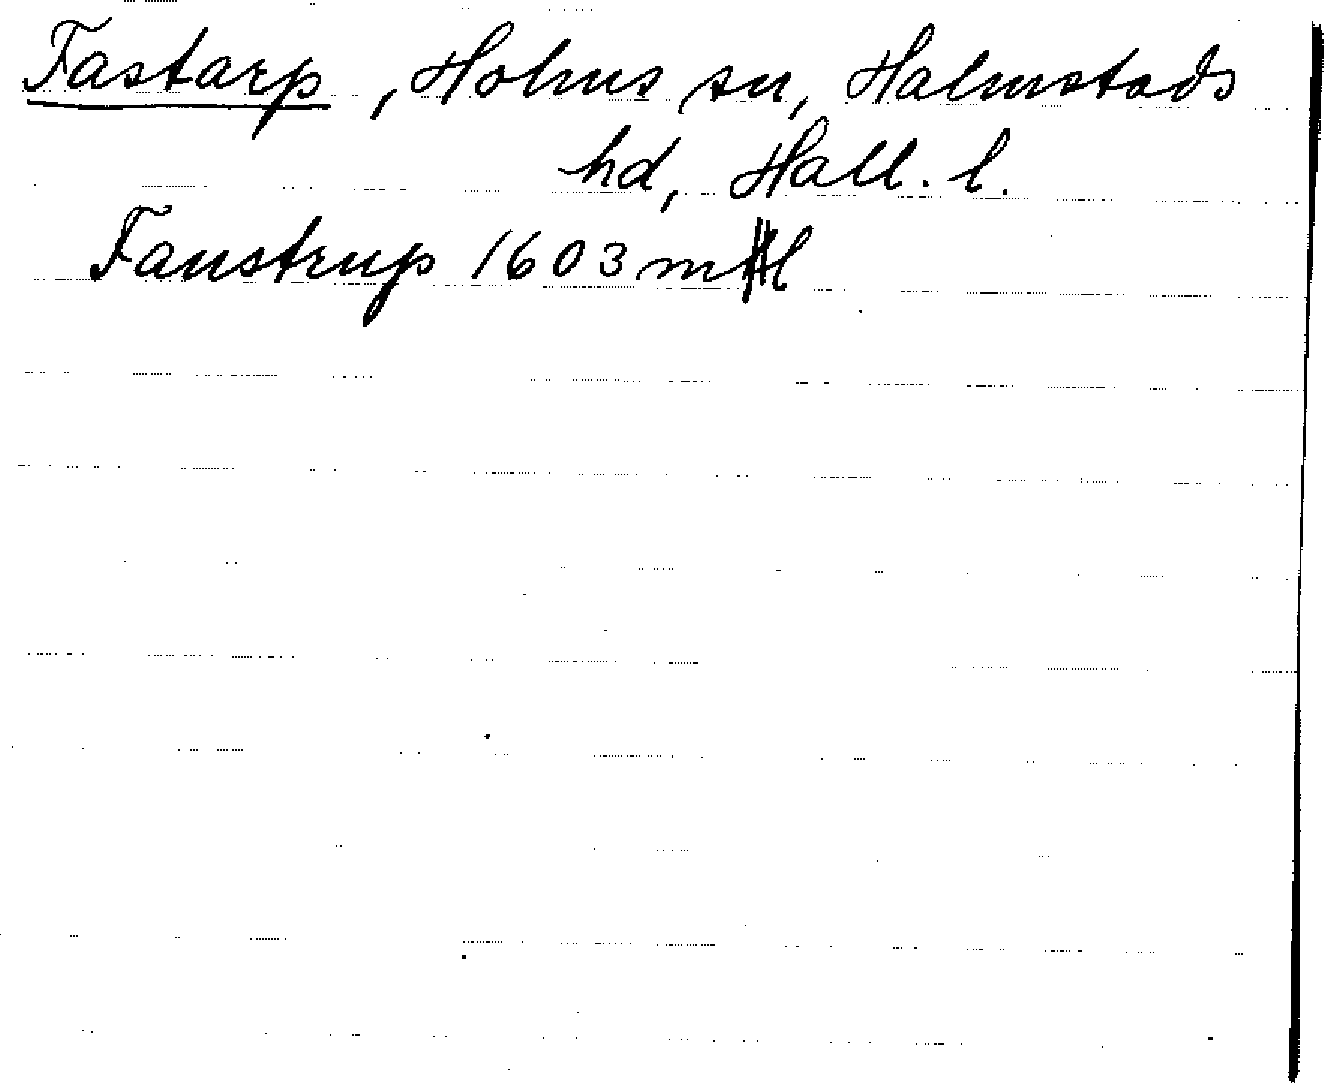 Fastarp, Holms sn, Halmstads
hd, Hall. l.
Faustrup 1603